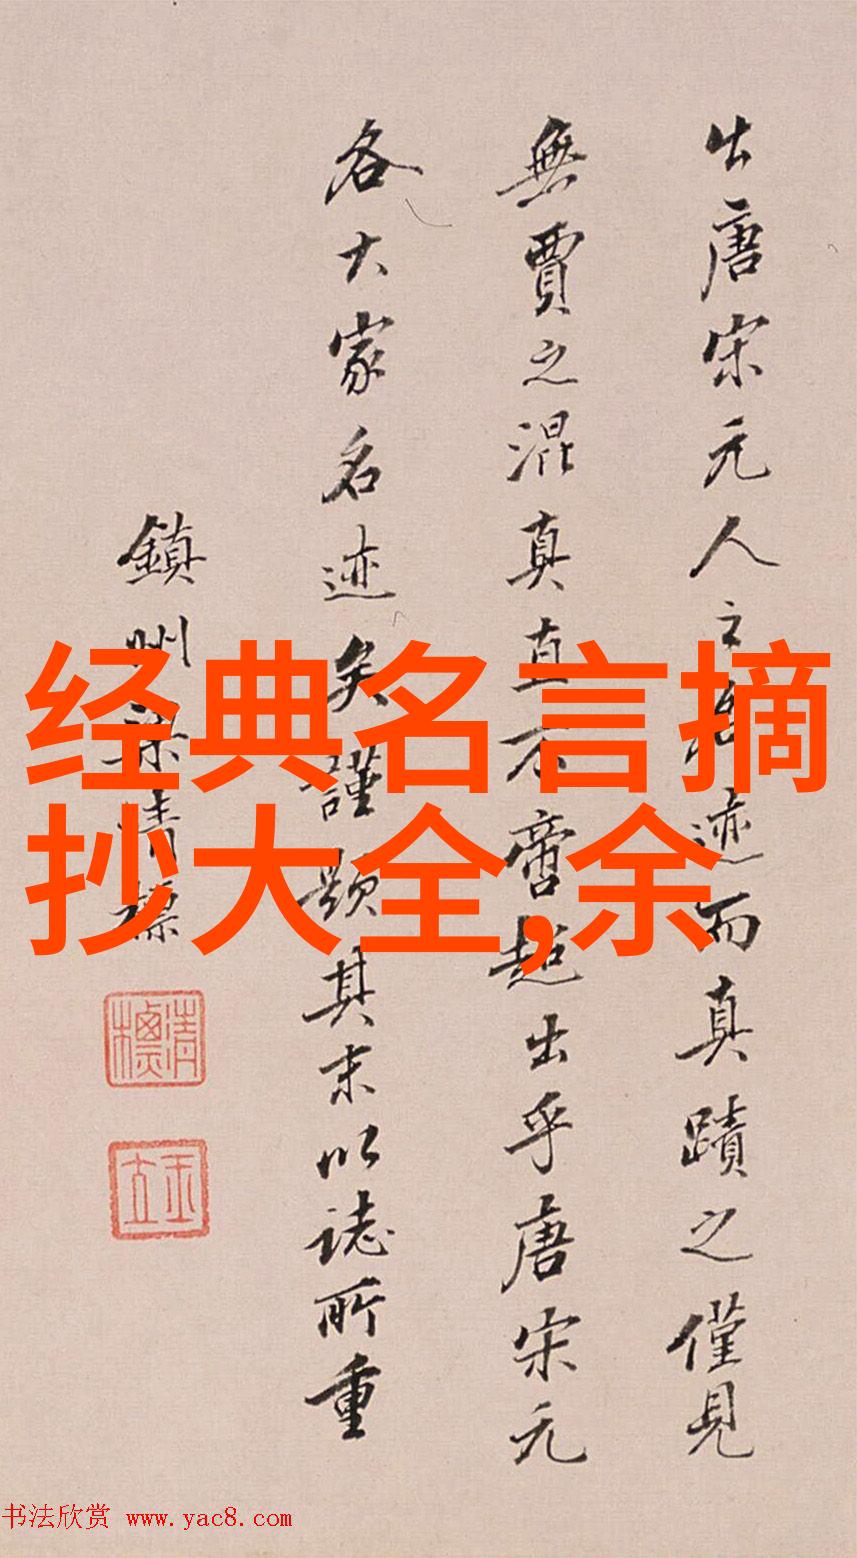 出唐宋元人之迹而真蹟之僅見
無賈之混真直不啻超出乎唐宋元
各大家名迹矣謹題其末以誌所重
鎮州梁清標
清標
玉立
经典名言摘
抄大全,余
书法欣赏 www.yac8.com